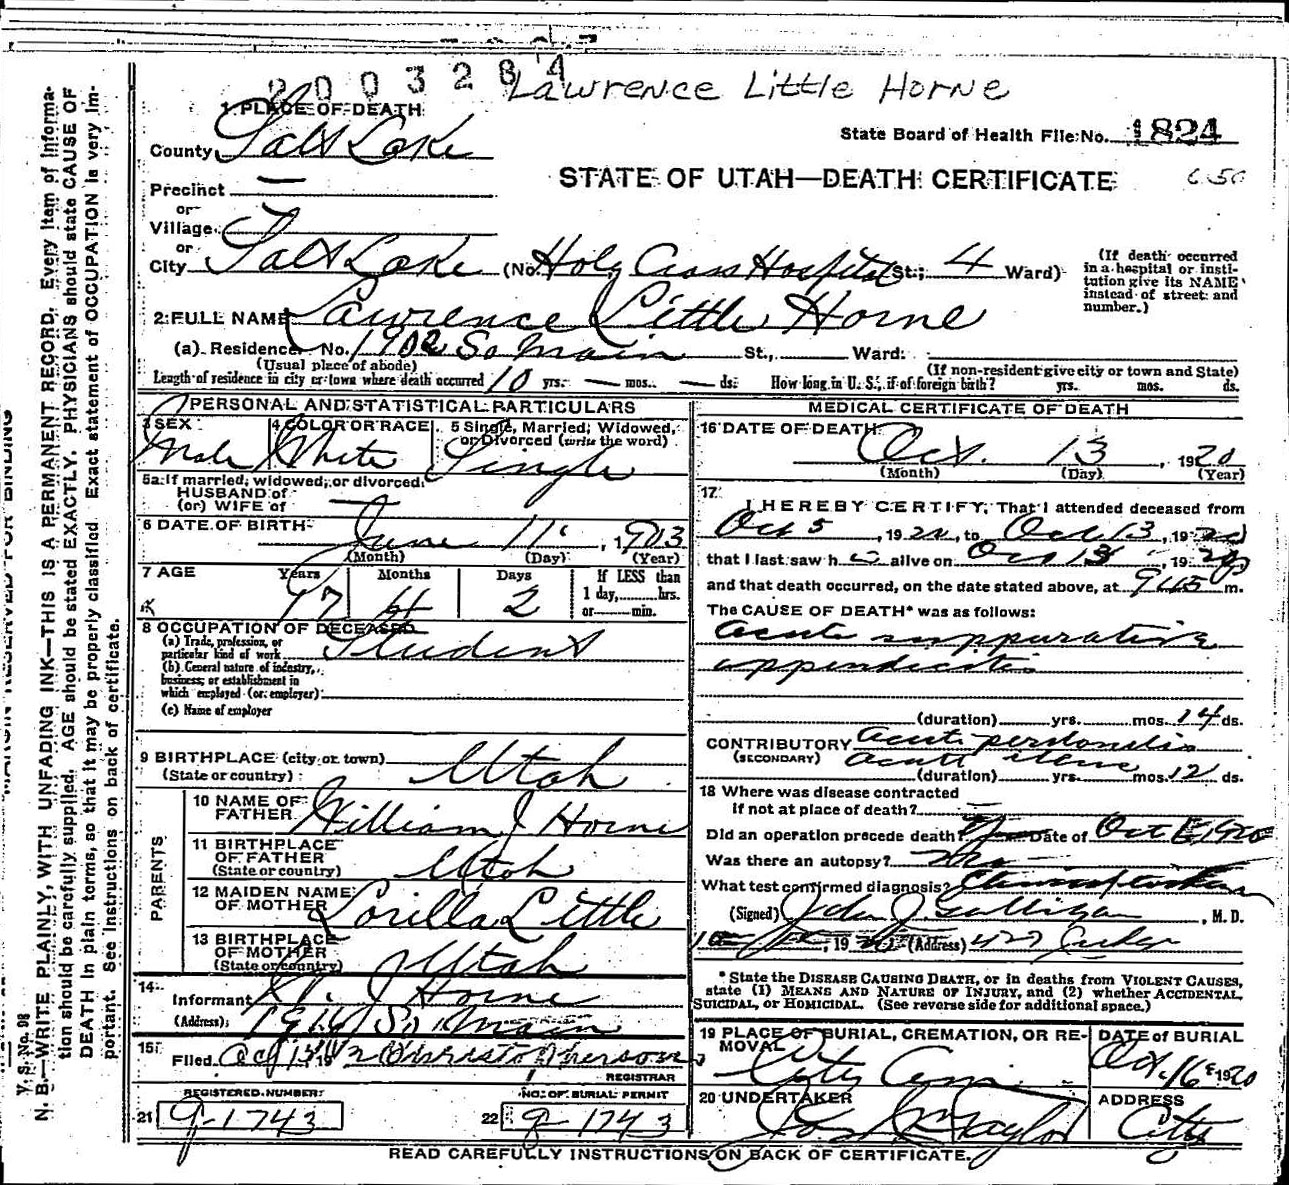 2003284
Lawrence Little Horne
1 PLACE OF DEATH
State Board of Health File No. 1824
County Salt Lake
STATE OF UTAH—DEATH CERTIFICATE
6.50
Precinct —
or
Village
or
City Salt Lake (No. Holy Cross Hospital St.; 4 Ward)
(If death occurred in a hospital or insti-
tution give its NAME
instead of street and
number.)
2 FULL NAME Lawrence Little Horne
(a) Residence. No. 1902 So Main St., Ward.
(Usual place of abode) (If non-resident give city or town and State)
Length of residence in city or town where death occurred 10 yrs. — mos. — ds. How long in U. S., if of foreign birth? yrs. mos. ds.
PERSONAL AND STATISTICAL PARTICULARS
3 SEX Male
4 COLOR OR RACE White
5 Single, Married, Widowed,
or Divorced (write the word) Single
5a If married, widowed, or divorced
HUSBAND of
(or) WIFE of —
6 DATE OF BIRTH June 11, 1903
(Month) (Day) (Year)
7 AGE Years Months Days If LESS than
1 day, hrs.
or min.
17 4 2
8 OCCUPATION OF DECEASED
(a) Trade, profession, or
particular kind of work Student
(b) General nature of industry,
business, or establishment in
which employed (or employer)
(c) Name of employer
9 BIRTHPLACE (city or town)
(State or country) Utah
PARENTS
10 NAME OF
FATHER William J Horne
11 BIRTHPLACE
OF FATHER
(State or country) Utah
12 MAIDEN NAME
OF MOTHER Lorilla Little
13 BIRTHPLACE
OF MOTHER
(State or country) Utah
14
Informant W. J Horne
(Address) So Main
15
Filed Oct
REGISTRAR
REGISTERED NUMBER NO. OF BURIAL PERMIT
21 9-1743 22 9-1743
MEDICAL CERTIFICATE OF DEATH
16 DATE OF DEATH Oct. 13, 1920
(Month) (Day) (Year)
17
I HEREBY CERTIFY, That I attended deceased from
Oct 5, 1920, to Oct 13, 1920
that I last saw h alive on Oct 13, 1920
and that death occurred, on the date stated above, at 945 m.
The CAUSE OF DEATH* was as follows:
acute suppurative
appendicitis
(duration) yrs. mos. 14 ds.
CONTRIBUTORY acute peritonitis
(SECONDARY) acute
(duration) yrs. mos. 12 ds.
18 Where was disease contracted
if not at place of death?
Did an operation precede death? Date of Oct 1920
Was there an autopsy? no
What test confirmed diagnosis?
(Signed) John J. Galligan, M. D.
, 19 (Address)
* State the DISEASE CAUSING DEATH, or in deaths from VIOLENT CAUSES,
state (1) MEANS AND NATURE OF INJURY, and (2) whether ACCIDENTAL,
SUICIDAL, or HOMICIDAL. (See reverse side for additional space.)
19 PLACE OF BURIAL, CREMATION, OR RE-
MOVAL City Cem.
DATE of BURIAL
Oct. 16 1920
20 UNDERTAKER Taylor
ADDRESS
City
READ CAREFULLY INSTRUCTIONS ON BACK OF CERTIFICATE.
MARGIN RESERVED FOR BINDING
V. S. No. 98
N. B.—WRITE PLAINLY, WITH UNFADING INK—THIS IS A PERMANENT RECORD. Every item of informa-
tion should be carefully supplied. AGE should be stated EXACTLY. PHYSICIANS should state CAUSE OF
DEATH in plain terms, so that it may be properly classified. Exact statement of OCCUPATION is very im-
portant. See instructions on back of certificate.